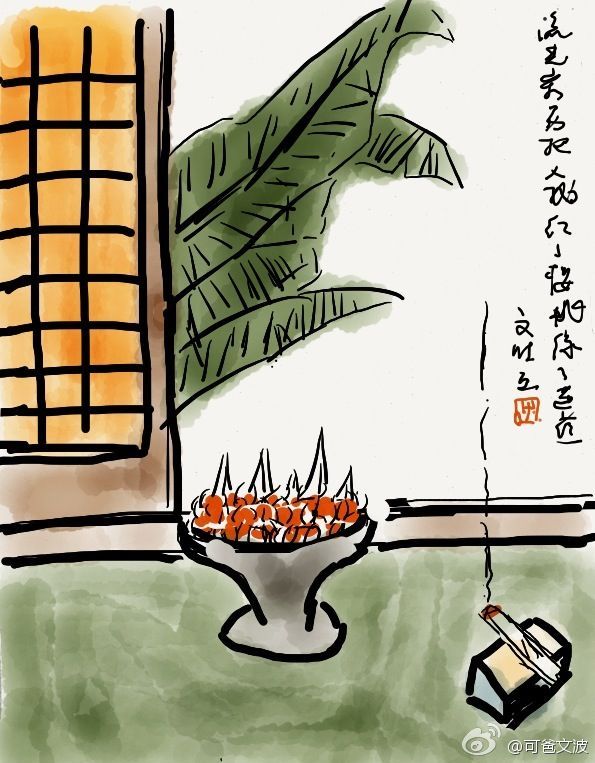 流光容易把人抛红了樱桃绿了芭蕉
文波
@可爸文波